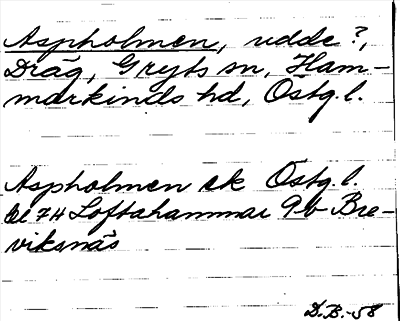 Aspholmen, udde?,
Dräg, Gryts sn, Ham-
markinds hd, Östg.l.
Aspholmen ek Östg.l.
bl 74 Loftahammar 9-b Bre-
viksnäs
D.B.-58